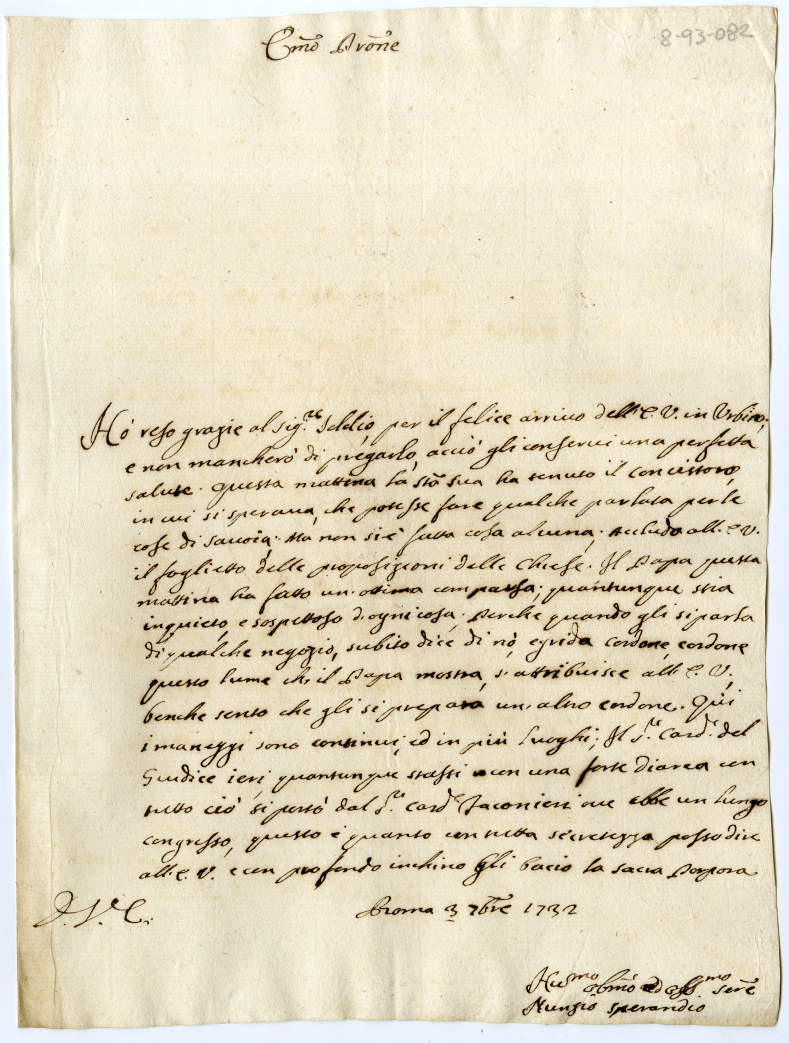 8-93-082
Em̃o Prone
Hò reso grazie al Sig.re Iddio per il felice arrivo dell'E. V. in Urbino,
e non mancherò di pregarlo, acciò gli conservi una perfetta
salute. Questa mattina la Stà sua ha tenuto il concistoro,
in cui si sperava, che potesse fare qualche parlata per le
cose di Savoia; Ma non si è fatta cosa alcuna; Accludo all'E. V.
il foglietto delle proposizioni delle Chiese. Il Papa questa
mattina ha fatto un'ottima comparsa; quantunque stia
inquieto, e sospettoso d'ogni cosa; Perche quando gli si parla
di qualche negozio, subito dice di nò, e grida cordone cordone
questo lume che il Papa mostra, s'attribuisce all'E. V.
benche sento che gli si prepara un altro cordone. Qui
i maneggi sono continui, ed in più luoghi; Il S.re Card.le del
Giudice ieri quantunque stassi con una forte diarea con
tutto ciò si portò dal S.re Card.le ove ebbe un lungo
congresso, questo è quanto con tutta secretezza posso dire
all'E. V. e con profondo inchino gli bacio la sacra Porpora
Roma 3 7bre 1732
Hu͠mo obm̃o ed aff.mo serv̄e
Nunzio Sperandio